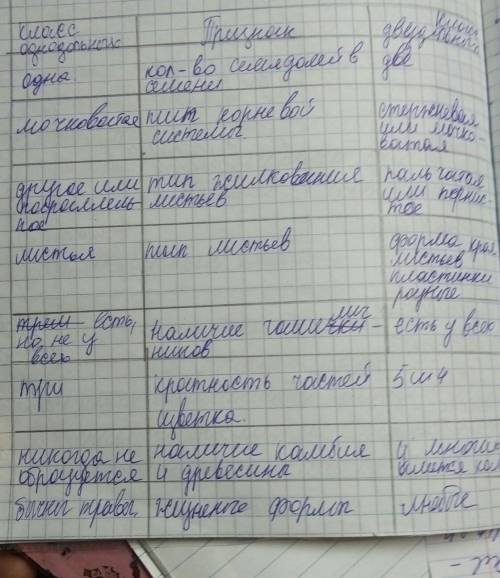 класс однодольных | Признак | класс двудольного
одна | кол-во семядолей в семени | две
мочковатая | тип корневой системы | стержневая или мочковатая
дуговое или параллельное | тип жилкования листьев | пальчатое или перистое
листья | тип листьев | форма края листьев пластинки разные
есть, но не у всех | наличие чашелистников | есть у всех
три | кратность частей цветка | 5 и 4
никогда не образуется | наличие камбия и древесина | и многих имеется
травы | жизненные формы | любые